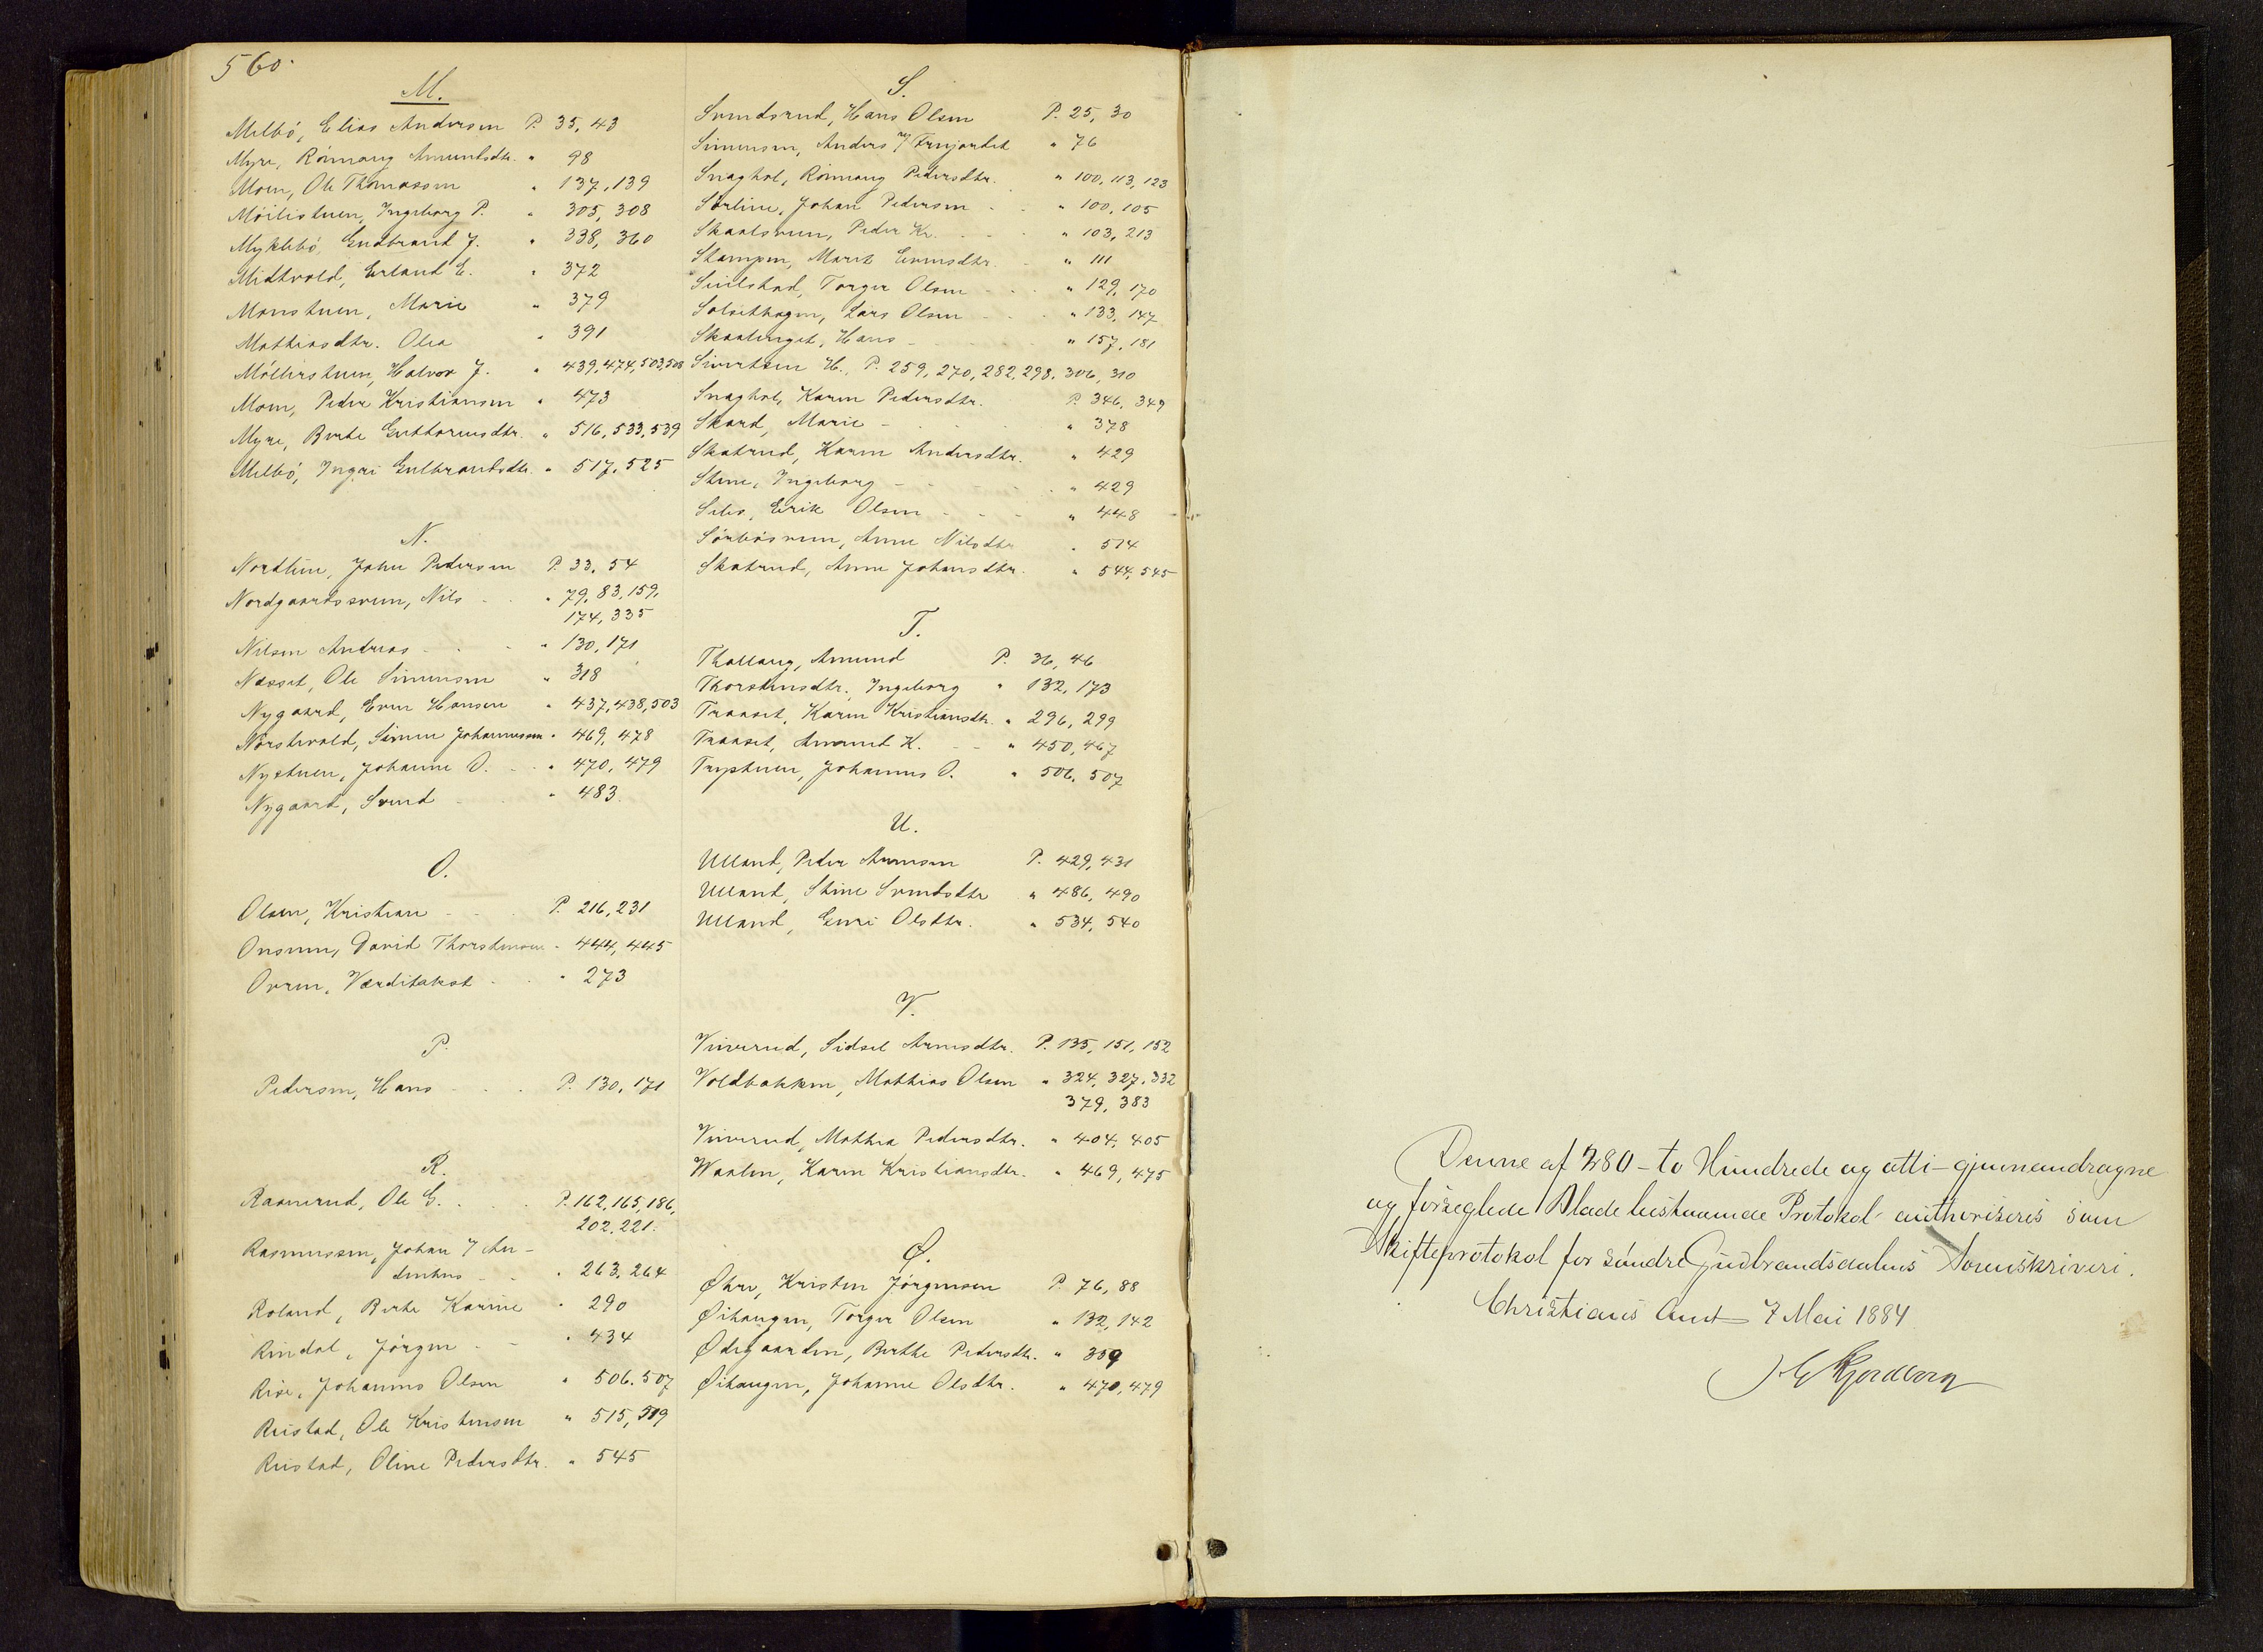 560.
M.
Melbö, Elias Andersen P. 35, 43
Myre, Rönnaug Amundsdtr. " 98
Moen, Ole Thomassen " 137, 139
Möilistuen, Ingeborg P. " 305, 308
Myklebö Gudbrand J. " 338, 360
Midtvold, Erland E. " 372
Monstuen, Marie " 379
Mathiasdtr. Olea " 391
Möllerstuen, Halvor J. " 439, 474, 503, 508
Moen, Peder Kristiansen " 473
Myre, Berte Guttormsdtr. " 516, 533, 539
Melbö, Ingri Gulbrandsdtr. " 517, 525
N.
Nordlien, Johan Pedersen P. 33, 54
Nordgaardssveen, Nils " 79, 83, 159,
174, 335
Nilsen Andreas " 130, 171
Næsset, Ole Simensen " 318
Nygaard, Even Hansen " 437, 438, 503
Nörstevold, Simen Johannessen " 469, 478
Nystuen, Johanne O. " 470, 479
Nygaard, Svend " 483.
O.
Olsen, Kristian P. 216, 231
Onsum, David Thorstensen " 444, 445
Ovren, Værditakst " 273
P.
Pedersen, Hans P. 130, 171
R.
Raanerud, Ole G. P. 162, 165, 186,
202, 221.
Rasmussen, Johan
" 263, 264
Roland, Berte Karine " 290
Rindal, Jörgen " 434
Rise, Johannes Olsen " 506. 507
Ristad, Ole Kristensen " 515, 519
Ristad, Oline Pedersdtr. " 545
S.
Svendsrud, Hans Olsen P. 25, 30
Simensen, Anders " 76
Snaghol, Rönnaug Pedersdtr. " 100, 113, 123
Sörline, Johan Pedersen " 100, 105
Skaalsveen, Peder Kr. " 103, 213
Stampen, Marit Evensdtr. " 111
Sveilstad, Torger Olsen " 129, 170
Solsethagen, Lars Olsen " 133, 147
Skaaleraget, Hans " 157, 181
Sivertsen H. P. 259, 270, 282, 298, 306, 310
Snaghol, Karen Pedersdtr. P. 346, 349
Skard, Marie " 378
Skatrud, Karen Andersdtr. " 429
Stene, Ingeborg " 429
Erik Olsen " 448
Anne Nilsdtr " 514
Skatrud, Anne Johansdtr. " 544, 545
T.
Thallaug, Amund P. 36, 46
Thorstensdtr., Ingeborg " 132, 173
Traaset, Karen Kristiansdtr. " 296, 299
Traaset, Amund K. " 450, 467
Trystuen, Johannes O. " 506, 507
U.
Ulland, Peder Arnesen P. 429, 431
Ulland, Stine Svendsdtr " 486, 490
Ulland, Guri Olsdtr. " 534, 540
V.
Vinerud, Sidsel Arnesdtr. P. 135, 151, 152
Voldbakken, Mathias Olsen " 324, 327, 332
379, 383
Vinerud, Mathea Pedersdtr. " 404, 405
Waalen, Karen Kristiansdtr. " 469, 475
Ø.
Øhre, Kristen Jörgensen P. 76, 88
Øihaugen, Torger Olsen " 132, 142
Ødegaarden, Berthe Pedersdtr. " 359
Øihaugen, Johanne Olsdtr. " 470, 479
Denne af 280 - to Hundrede og otti - gjennemdragne
og forseglede Blade bestaaende Protokol authoriseres som
Skifteprotokol for söndre Gudbrandsdalens Sorenskriveri.
Christians Amt 7 Mai 1884